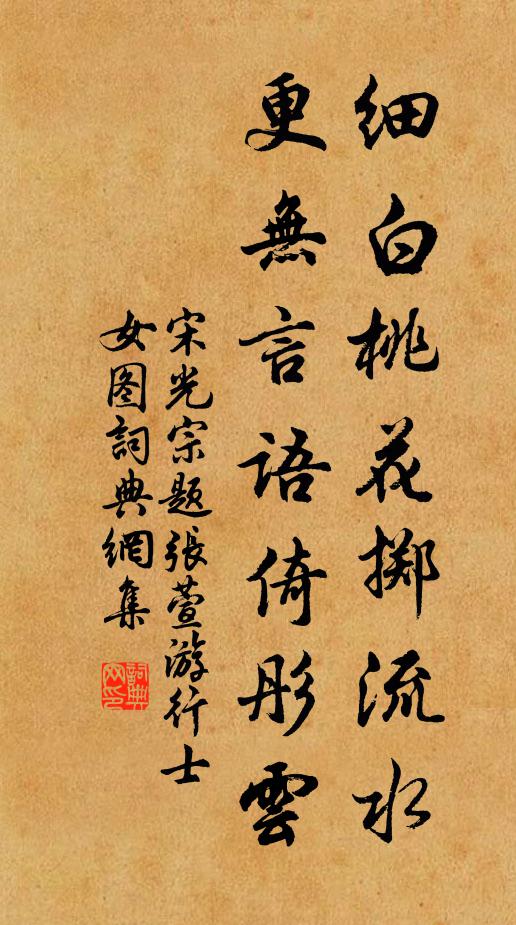 细白桃花掷流水
更無言語倚彤雲
宋光宗题張萱游行士
女图詞典網集
詞典
网印